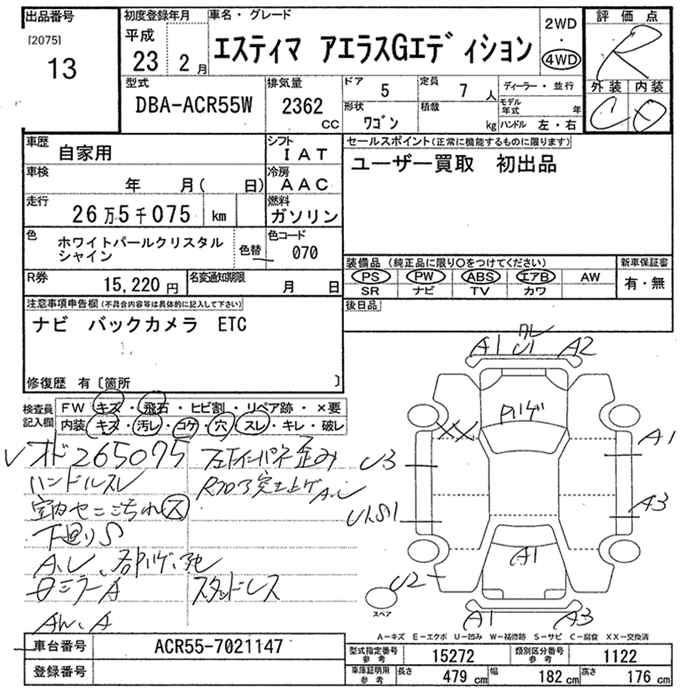 出品番号
[2075]
13
初度登録年月
平成
23 2月
車名・グレード
エスティマ アエラスGエディション
2WD
・
4WD
評価点
R
外装 内装
C D
型式
DBA-ACR55W
排気量
2362
cc
ドア
5
定員
7 人
形状
ワゴン
積載
kg
ディーラー・並行
モデル年式 年
ハンドル 左・右
車歴
自家用
シフト
IAT
車検
年 月( 日)
冷房
AAC
走行
26万5千075 km
燃料
ガソリン
色
ホワイトパールクリスタル
シャイン
色替
色コード
070
R券
15,220 円
名変通知期限
月 日
セールスポイント(正常に機能するものに限ります)
ユーザー買取 初出品
装備品(純正品に限り○をつけてください)
PS PW ABS エアB AW
SR ナビ TV カワ
新車保証書
有・無
後日品
注意事項申告欄(不具合内容等は具体的に記入して下さい)
ナビ バックカメラ ETC
修復歴 有〔箇所 〕
検査員
記入欄
FW キズ・飛石・ヒビ割・リペア跡・×要
内装 キズ・汚レ・コゲ・穴・スレ・キレ・破レ
オド265075
ハンドルスレ
下廻りS
スタッドレス
A1 U1 A2
XX
U3
A1
A3
A1
U2
A1 A3
スペア
A-キズ E-エクボ U-凹み W-補修跡 S-サビ C-腐食 XX-交換済
車台番号
ACR55-7021147
登録番号
型式指定番号
参考
15272
類別区分番号
参考
1122
車庫証明用
参考
長さ 479 cm
幅 182 cm
高さ 176 cm